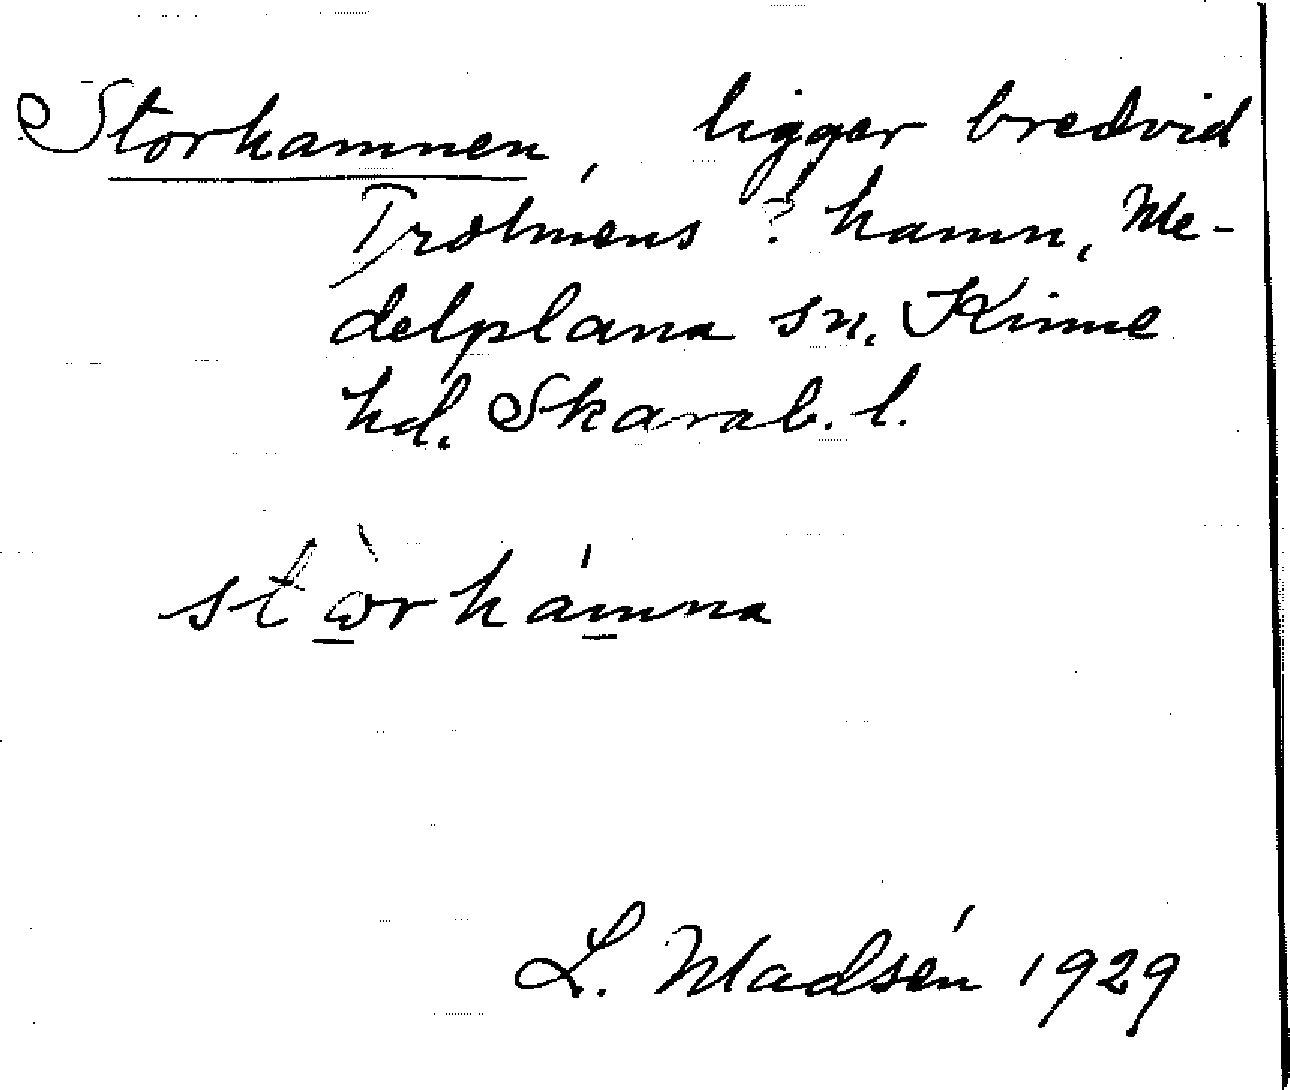 Storhamnen, ligger bredvid
Trolmens? hamn, Me-
delplana sn, Kinne
hd. Skarab. l.
stòrhámna
L. Madsén 1929